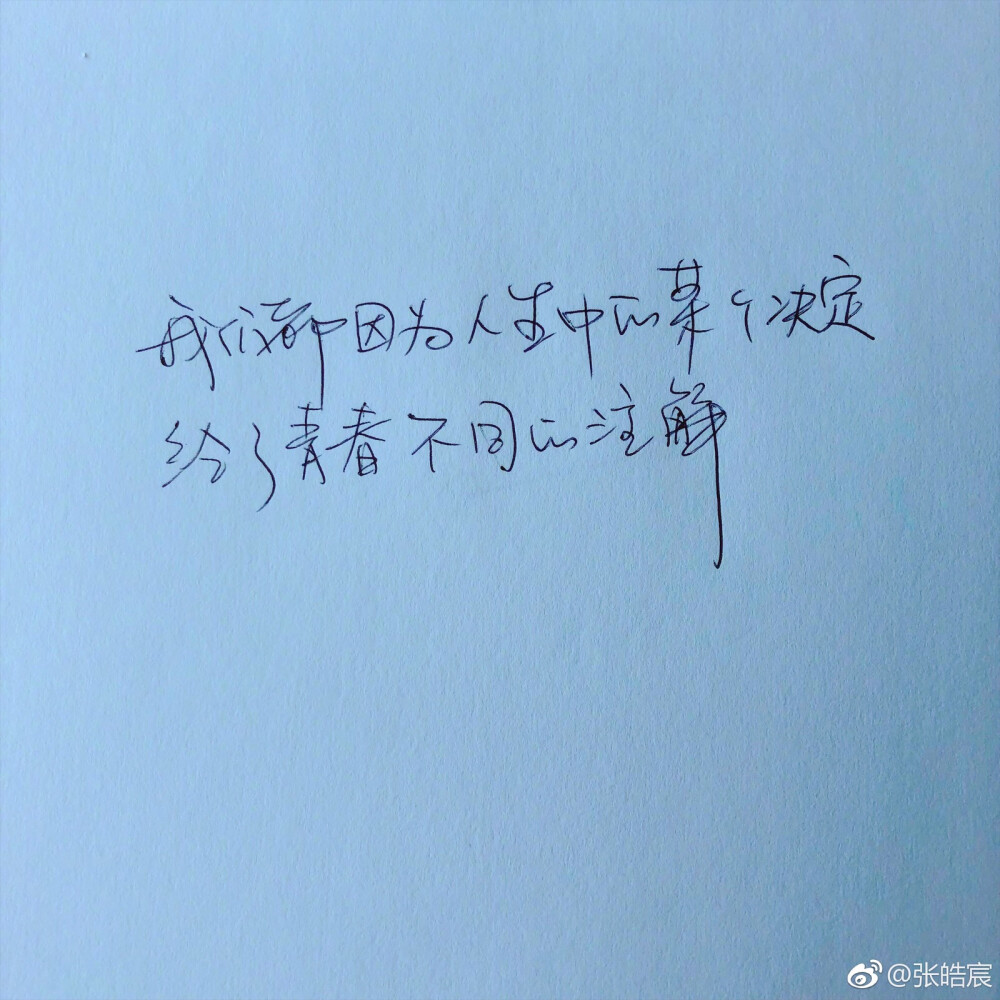 我们都因为人生中的某个决定
给了青春不同的注解
@张皓宸